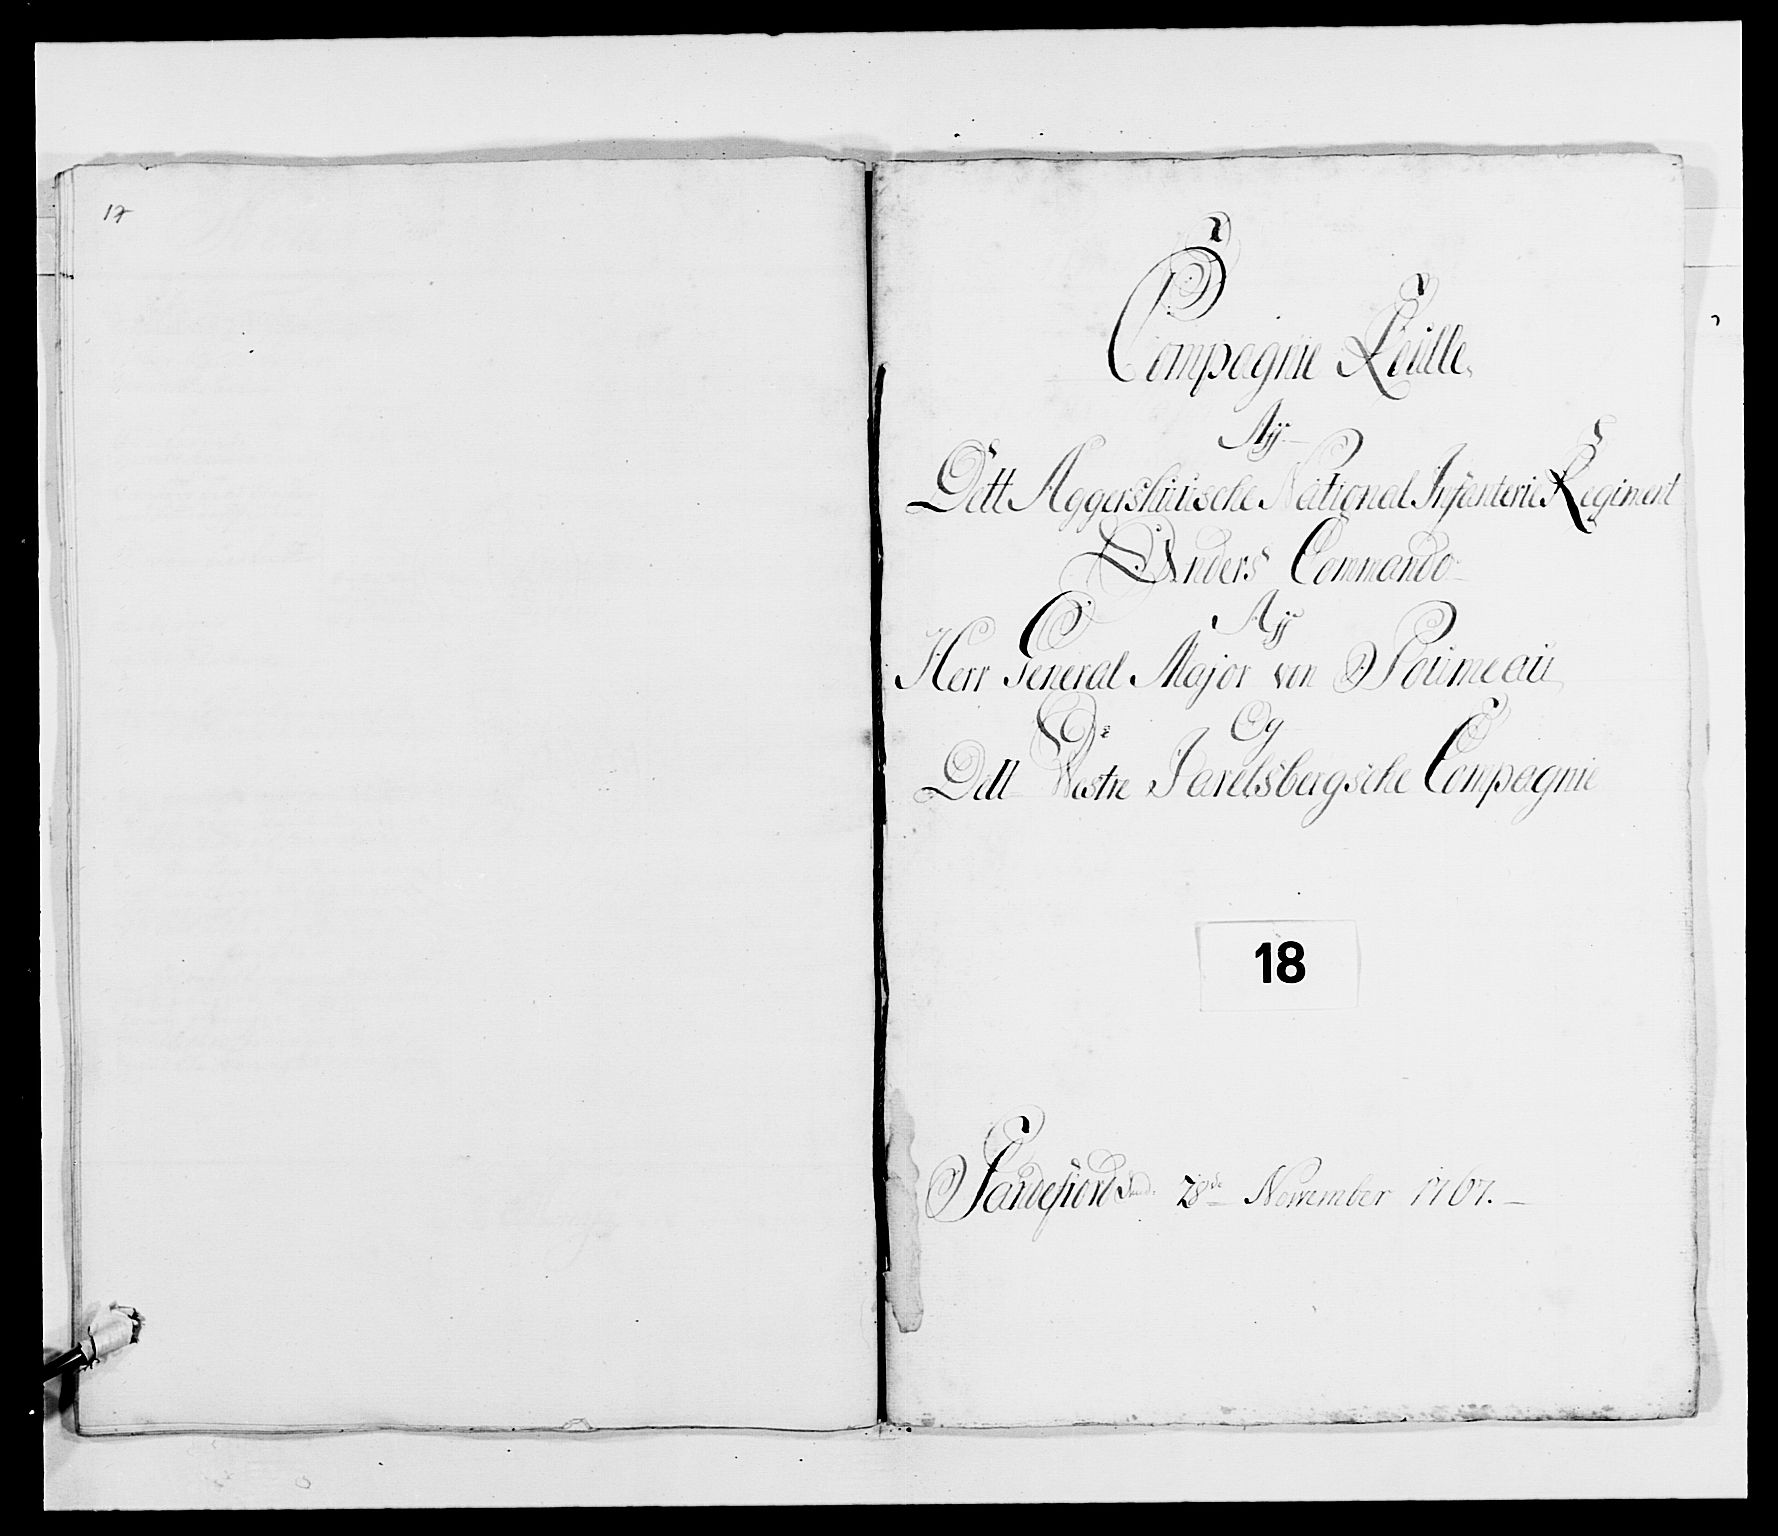 17
Compagnie Roulle,
Aff
Dett Aggershuusche National Infanterie Regiment
Unders Commando
Aff
Herr General Major von Poumeau
Og
Dett Westre Jarelsbergsche Compagnie
18
Sandefiord 28de November 1767.